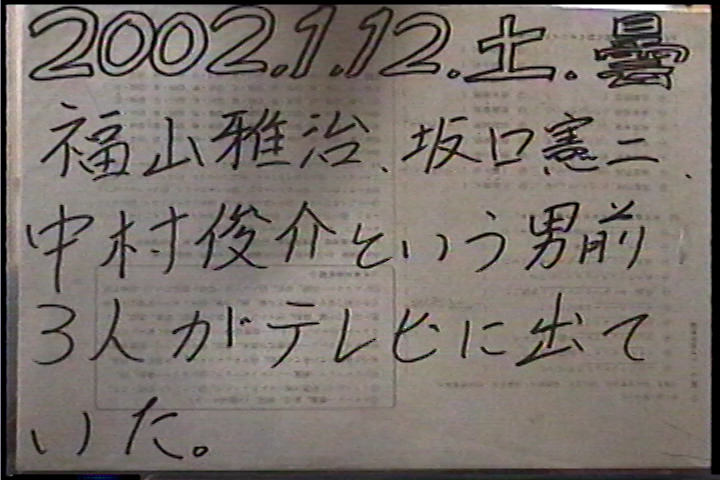 2002.1.12.土.曇
福山雅治、坂口憲二、
中村俊介という男前
3人がテレビに出て
いた。